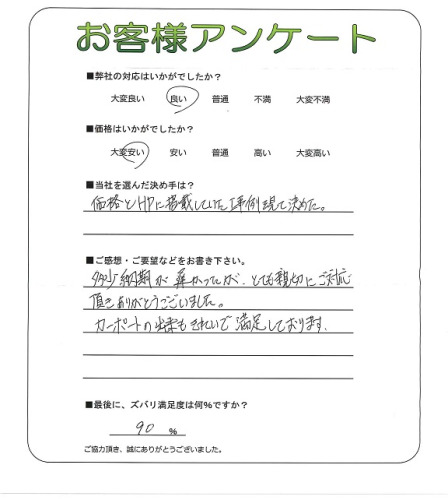 お客様アンケート
■弊社の対応はいかがでしたか？
大変良い 良い 普通 不満 大変不満
■価格はいかがでしたか？
大変安い 安い 普通 高い 大変高い
■当社を選んだ決め手は？
価格とHPに搭載していた工事例見て決めた。
■ご感想・ご要望などをお書き下さい。
多少納期が遅かったが、とても親切にご対応
頂きありがとうございました。
カーポートの出来もきれいで満足しております。
■最後に、ズバリ満足度は何%ですか？
90 %
ご協力頂き、誠にありがとうございました。